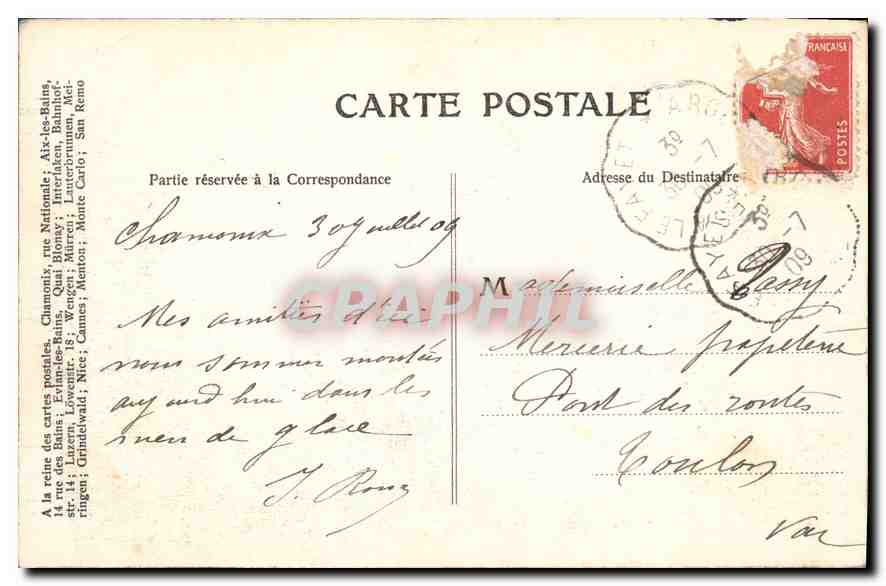 CARTE POSTALE
Partie réservée à la Correspondance
Adresse du Destinataire
Chamonix 30 Juillet 09
Mes amitiés d'ici
nous sommes montés
aujourd'hui dans les
mers de glace
J.
Mademoiselle Passy
Mercerie papeterie
Pont des routes
Toulon
Var
A la reine des cartes postales. Chamonix, rue Nationale; Aix-les-Bains,
14 rue des Bains; Evian-les-Bains, Quai Blonay; Interlaken, Bahnhof-
str. 14; Luzern, Löwenstr. 18; Wengen; Mürren; Lauterbrunnen, Mei-
ringen; Grindelwald; Nice; Cannes; Menton; Monte Carlo; San Remo
FRANÇAISE
POSTES
LE FAYET
3º
30 -7
09
3º
30 -7
09
CPAPHIL